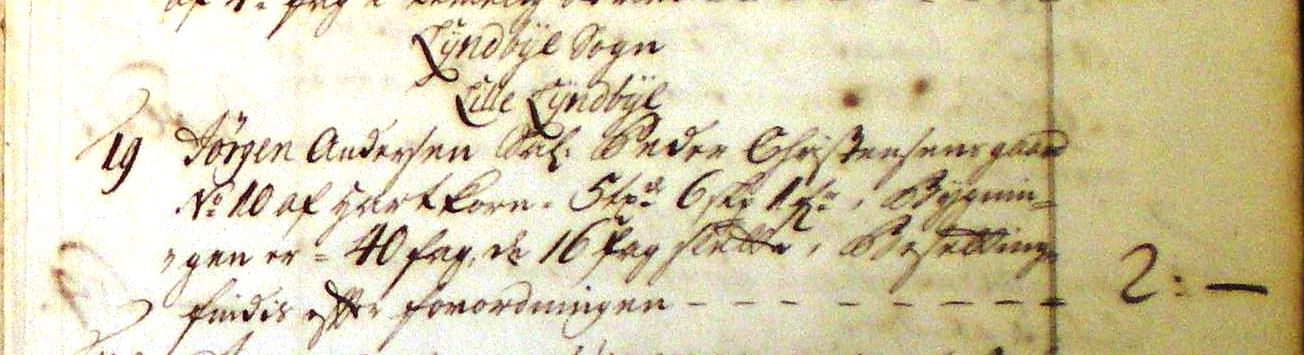 Lÿndbÿe Sogn
Lille Lÿndbÿe
19 Jörgen Andersen Peder Christensens gaard
No 10 af Hartkorn. 5 tdr 6 skp 1 , Bÿgnin=
=gen er = 40 fag, de 16 fag slette, Besetting
findis efter forordningen - - - - - - - - - 2: —